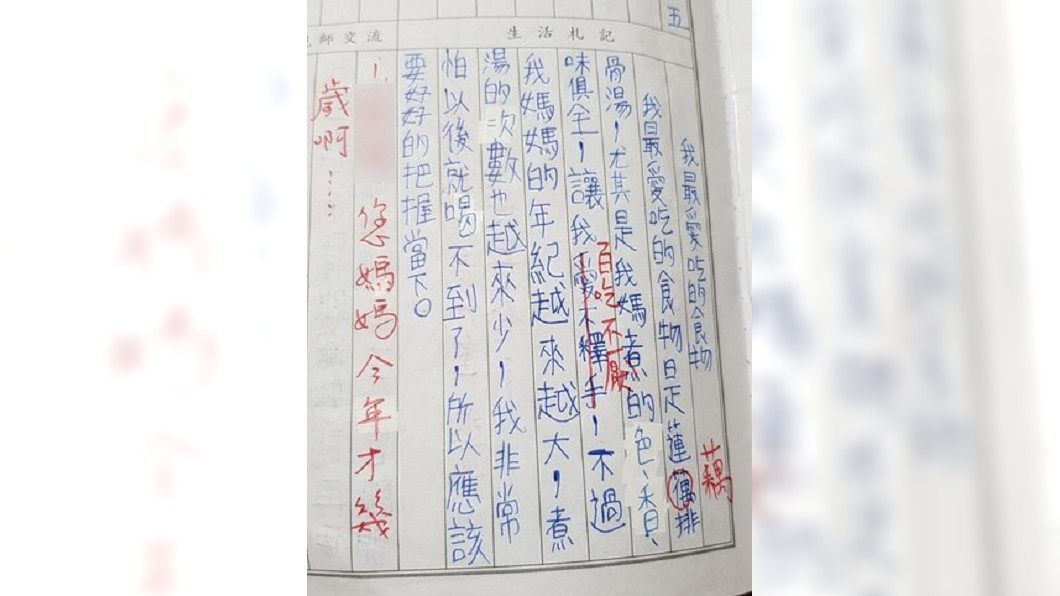 五
生活札記
師交流
我最愛吃的食物
我最愛吃的食物是蓮排
藕
骨湯，尤其是我媽煮的色、香、
味俱全，讓我愛不釋手，不過
百吃不厭
我媽媽的年紀越來越大，煮
湯的次數也越來少，我非常
怕以後就喝不到了，所以應該
要好好的把握當下。
1. 您媽媽今年才幾
歲啊……